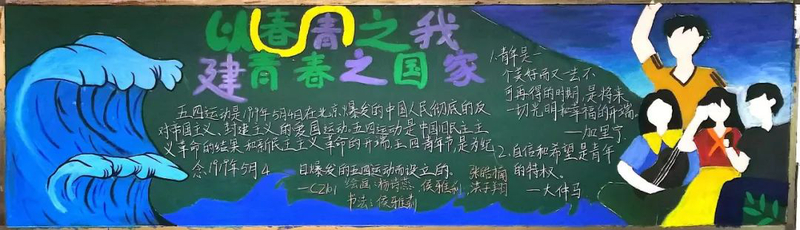 以青春之我
建青春之国家
五四运动是1919年5月4日在北京爆发的中国人民彻底的反
对帝国主义、封建主义的爱国运动,五四运动是中国旧民主主
义革命的结束和新民主主义革命的开端,五四青年节是为纪
念1919年5月4
日爆发的五四运动而设立的。
绘画:杨诗 侯雅利
书法:侯雅利
1.青年是一
个美好而又一去不
可再得的时期,是将来
一切光明和幸福的开端
——加里宁
2.自信和希望是青年
的特权。
——大仲马